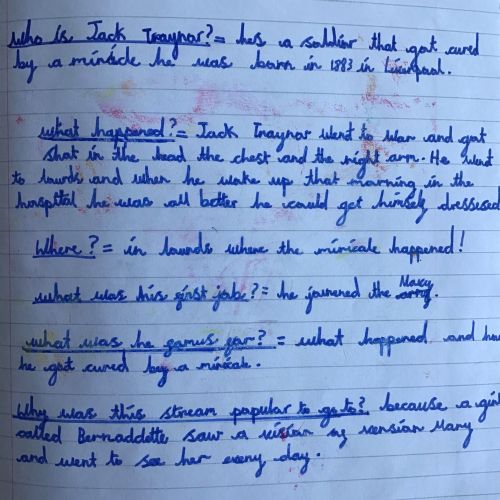 Who is Jack Traynor? = hes a soldior that got cured
by a miricle he was born in 1883 in Liverpool.
what happened? = Jack Traynor went to war and got
shot in the head the chest and the right arm. He went
to lourds and when he woke up that morning in the
hospittal he was all better he could get himself dressesed
Where? = in lourds where the miricale happened!
what was his first job? = he journed the Navy
what was he famus for? = what happened and how
he got cured by a miricale.
Why was this stream popular to go to? because a girl
called Bernaddette saw a vision of Mary
and went to see her every day.